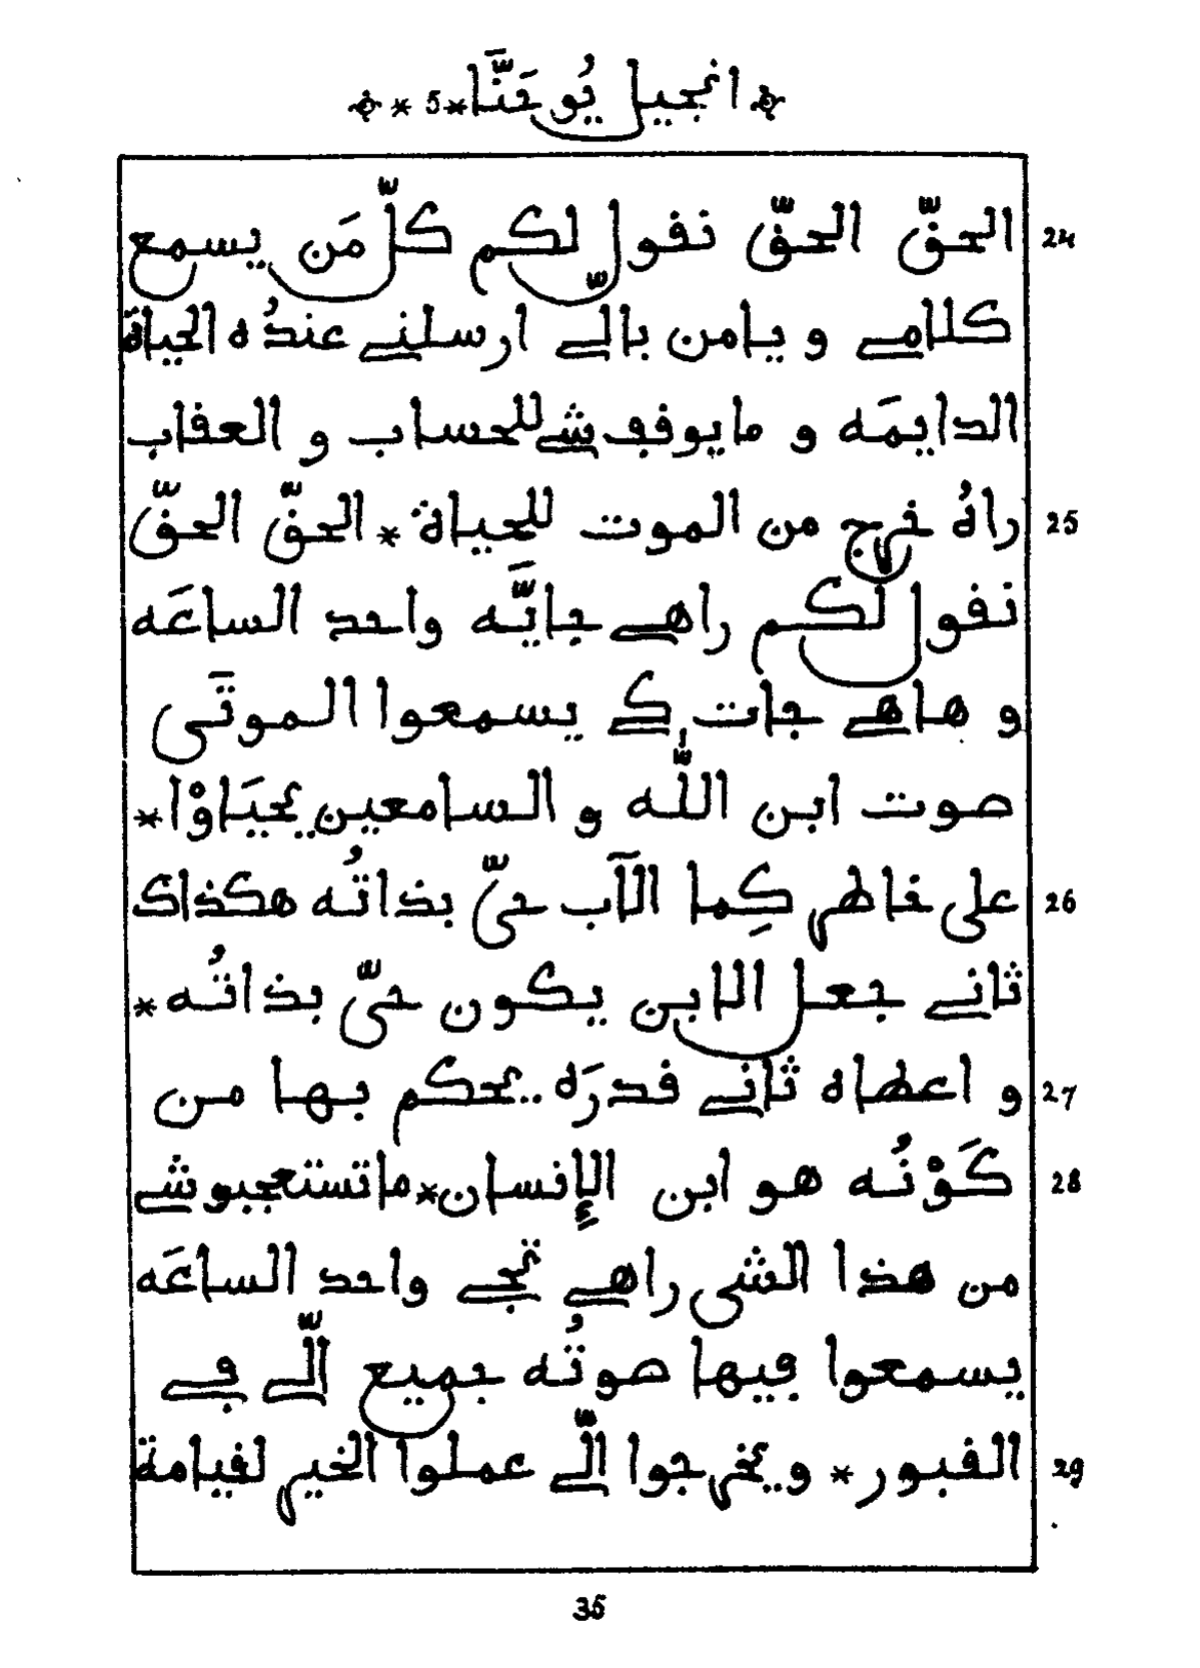 انجيل يُوحَنَّا * 5 *
24 الحقّ الحقّ نقول لكم كلّ مَن يسمع
كلامي و يامن بالّي ارسلني عندُه الحياة
الدايمَه و ما يوقف شي للحساب و العقاب
25 راهُ خرج من الموت للحياة * الحقّ الحقّ
نقول لكم راهي جايَّه واحد الساعَه
و هاهي جات كي يسمعوا الموتَى
صوت ابن اللّٰه و السامعين يحيَاوْا *
26 على خاطر كِما الآب حيّ بذاتُه هكذاك
ثاني جعل الابن يكون حيّ بذاتُه *
27 و اعطاه ثاني قدرَه يحكم بها من
28 كَوْنُه هو ابن الإنسان * ما تستعجبوشي
من هذا الشي راهي تجي واحد الساعَه
يسمعوا فيها صوتُه جميع الّي في
29 القبور * و يخرجوا الّي عملوا الخير لقيامة
35